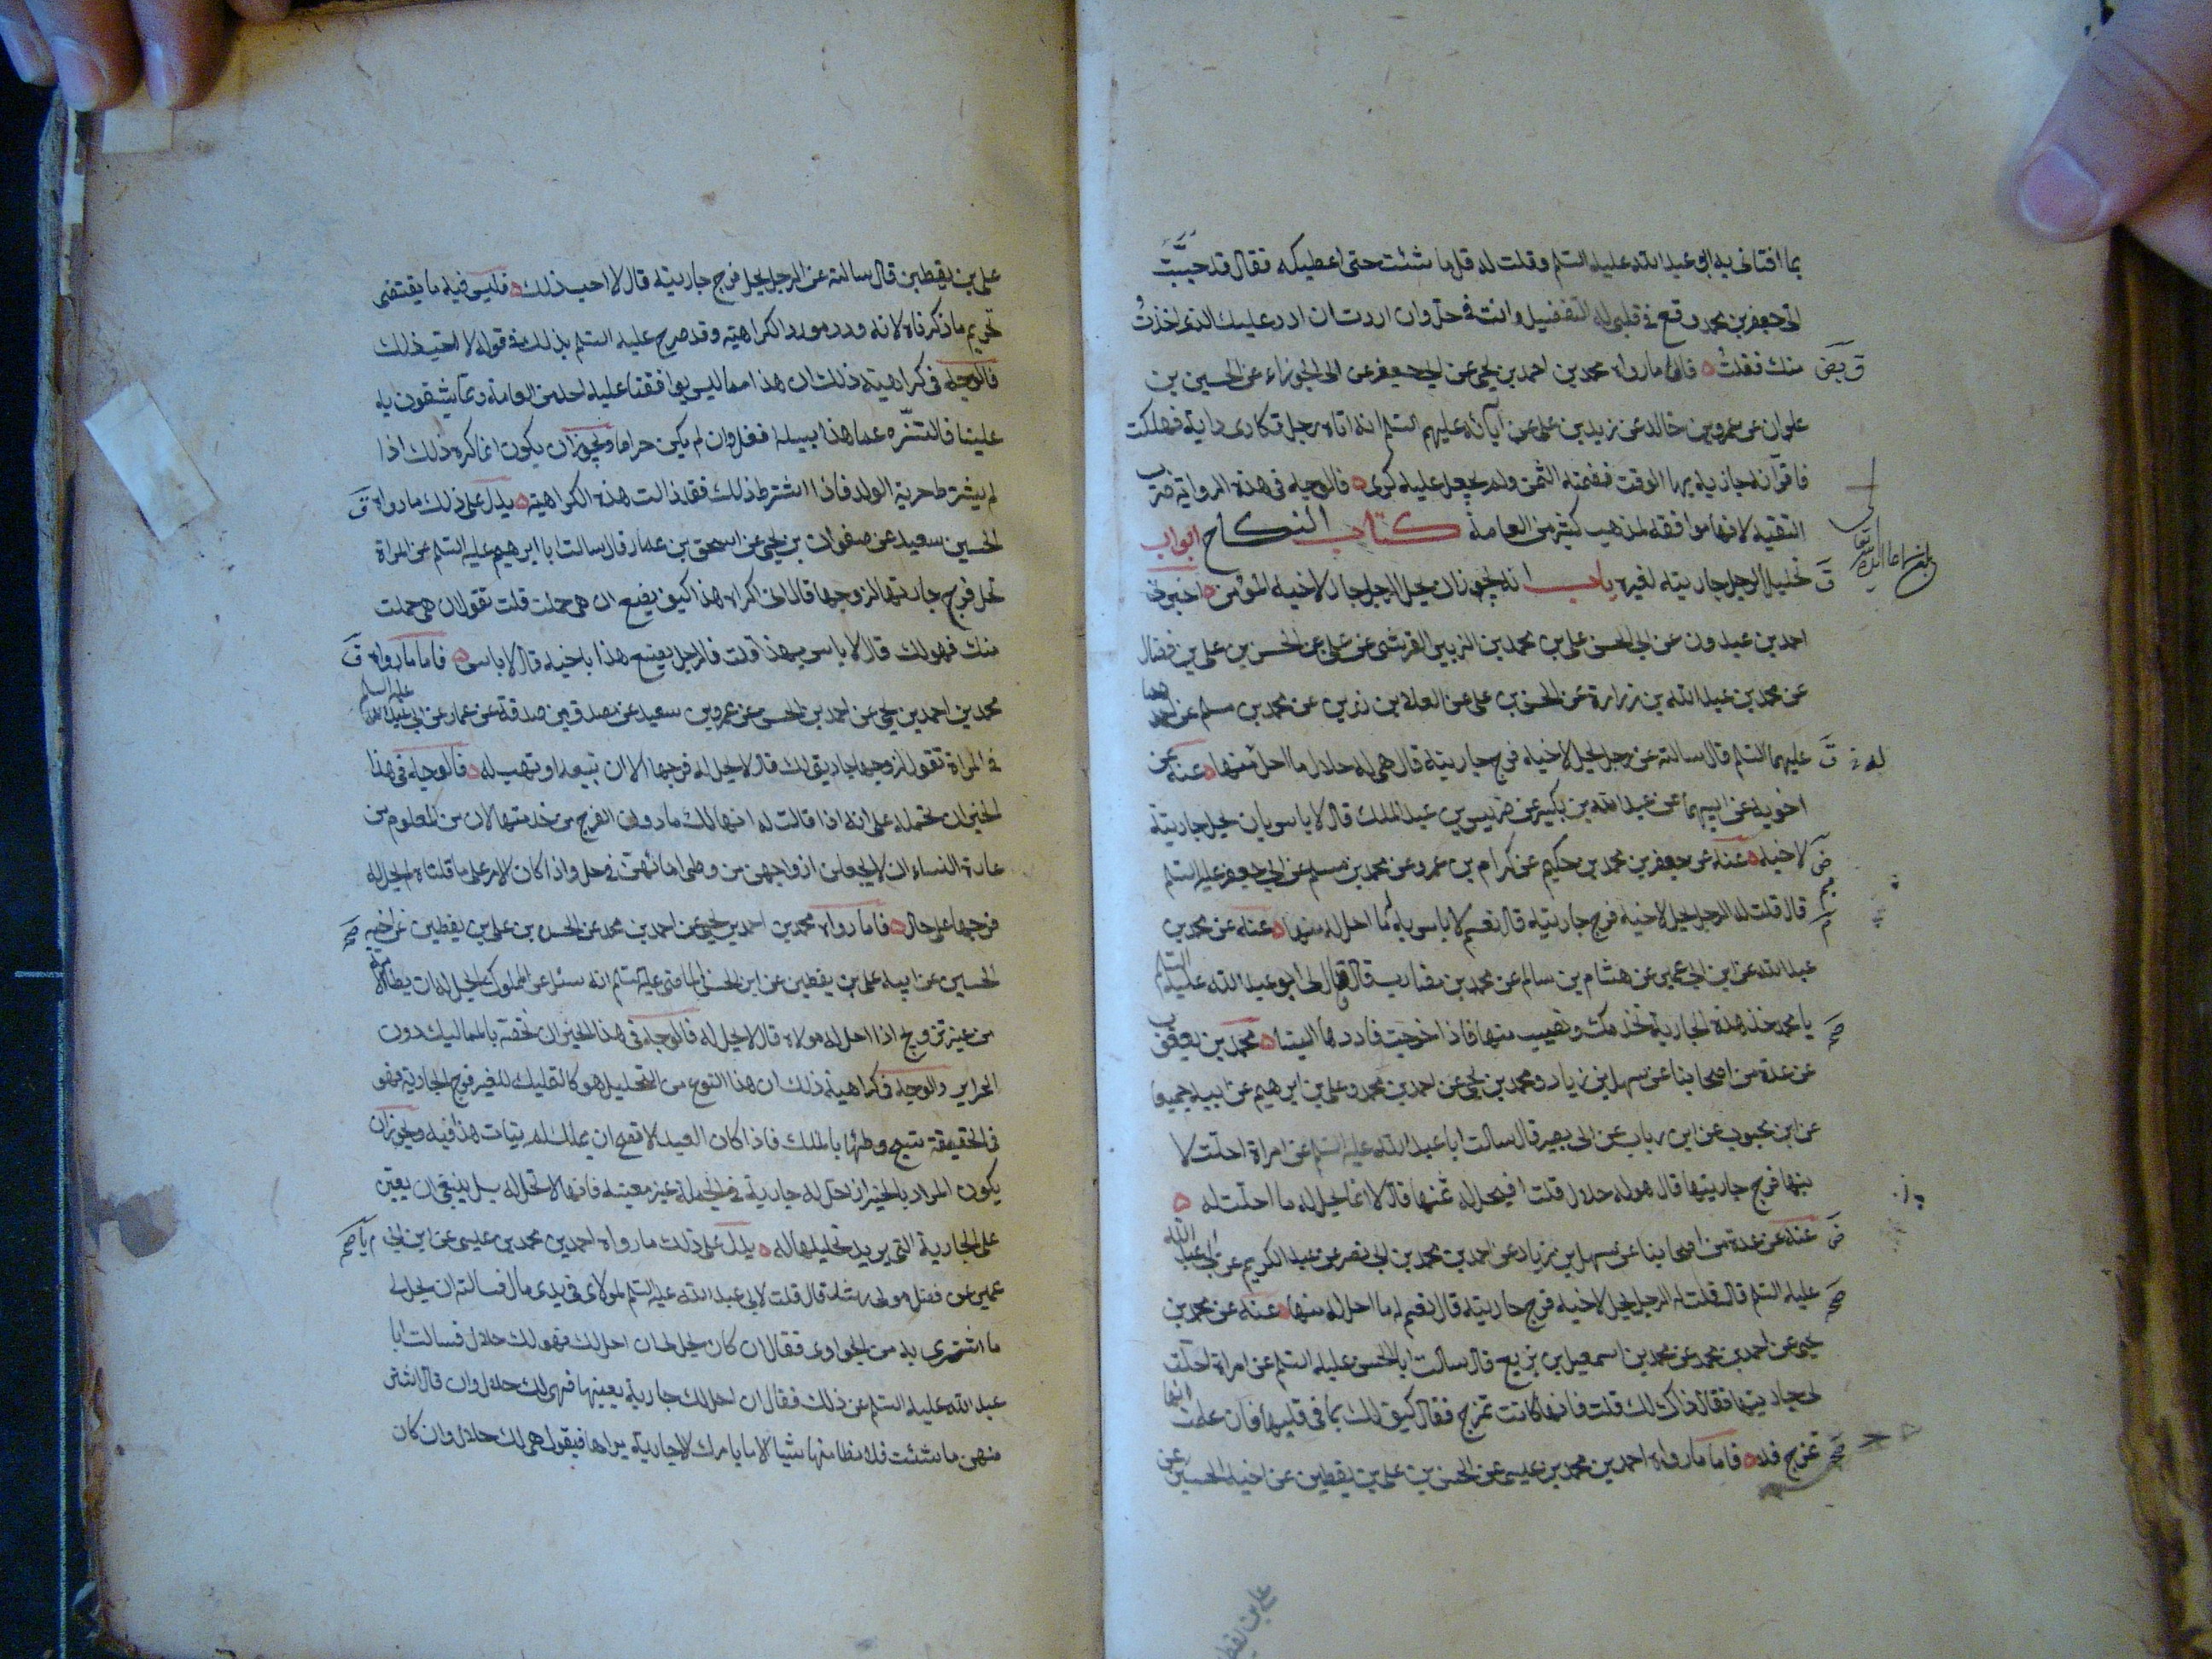 بما افتانى به ابو عبد الله عليه السلم وقلت له قل ما شئت حتى اعطيكه فقال قد حببت
الى جعفر بن محمد ووقع فى قلبى له التفضيل وانت فى حل وان اردت ان ارد عليك الذى اخذت
منك فعلت فاما ما رواه محمد بن احمد بن يحيى عن ابى جعفر عن ابى الجوزاء عن الحسين بن
علوان عن عمرو بن خالد عن زيد بن على عن آبائه عليهم السلم انه اتاه رجل تكارى دابة فهلكت
فاقر انه جاز بها الوقت فضمنه الثمن ولم يجعل عليه كرى فالوجه فى هذه الرواية ضرب
التقية لانها موافقة لمذهب كثير من العامة كتاب النكاح ابواب
تحليل الرجل جاريته لغيره باب انه يجوز ان يحل الرجل جاريته لاخيه المؤمن اخبرنى
احمد بن عبدون عن ابى الحسن على بن محمد بن الزبير القرشى عن على بن الحسن بن على بن فضال
عن محمد بن عبد الله بن زرارة عن الحسن بن على عن العلاء بن رزين عن محمد بن مسلم عن احدهما
عليهما السلم قال سالته عن رجل يحل لاخيه فرج جاريته قال هى له حلال ما احل منها عنه عن
اخويه عن ابيهما عن عبد الله بن بكير عن ضريس بن عبد الملك قال لا باس بان يحل جاريته
لاخيه عنه عن جعفر بن محمد بن حكيم عن كرام بن عمرو عن محمد بن مسلم عن ابى جعفر عليه السلم
قال قلت له الرجل يحل لاخيه فرج جاريته قال نعم لا باس به له ما احل له منها عنه عن محمد بن
عبد الله عن ابن ابى عمير عن هشام بن سالم عن محمد بن مضارب قال قال لى ابو عبد الله عليه السلم
يا محمد خذ هذه الجارية تخدمك وتصيب منها فاذا خرجت فارددها الينا محمد بن يعقوب
عن عدة من اصحابنا عن سهل بن زياد ومحمد بن يحيى عن احمد بن محمد وعلى بن ابرهيم عن ابيه جميعا
عن ابن محبوب عن ابن رياب عن ابى بصير قال سالت ابا عبد الله عليه السلم عن امراة احلت لا
بنها فرج جاريتها قال هو له حلال قلت افيحل له ثمنها قال لا انما يحل له ما احلت له
عنه عن عدة من اصحابنا عن سهل بن زياد عن احمد بن محمد بن ابى نصر عن عبد الكريم عن ابى عبد الله
عليه السلم قال قلت له الرجل يحل لاخيه فرج جاريته قال نعم له ما احل له منها عنه عن محمد بن
يحيى عن احمد بن محمد عن محمد بن اسمعيل بن بزيع قال سالت ابا الحسن عليه السلم عن امراة احلت
لى جاريتها فقال ذاك لك قلت فانها كانت تمزح فقال كيف لك بما فى قلبها فان علمت انها
تمزح فلا فاما ما رواه احمد بن محمد بن عيسى عن الحسن بن على بن يقطين عن اخيه الحسين عن
على بن يقطين قال سالته عن الرجل يحل فرج جاريته قال لا احب ذلك فليس فيه ما يقتضى
تحريم ما ذكرناه لانه ورد مورد الكراهية وقد صرح عليه السلم بذلك فى قوله لا احب ذلك
فالوجه فى كراهية ذلك ان هذا مما ليس يوافقنا عليه احد من العامة ومما يشنعون به
علينا فالتنزه عما هذا سبيله افضل وان لم يكن حراما ويجوز ان يكون انما كره ذلك اذا
لم يشترط حرية الولد فاذا اشترط ذلك فقد زالت هذه الكراهية يدل على ذلك ما رواه
الحسين سعيد عن صفوان بن يحيى عن اسحق بن عمار قال سالت ابا ابرهيم عليه السلم عن المراة
تحل فرج جاريتها لزوجها قال انى اكره هذا كيف يصنع ان هى حملت قلت تقول ان هى حملت
منك فهو لك قال لا باس بهذا قلت فالرجل يصنع هذا باخيه قال لا باس فاما ما رواه
محمد بن احمد بن يحيى عن احمد بن الحسن عن عمرو بن سعيد عن مصدق بن صدقة عن عمار عن ابى عبد الله عليه السلم
فى المراة تقول لزوجها جاريتى لك قال لا يحل له فرجها الا ان تبيعه او تهب له فالوجه فى هذا
الخبر ان نحمله على انه اذا قالت له انها لك ما دون الفرج من خدمتها لان من المعلوم من
عادة النساء ان لا يجعلن ازواجهن من وطى امائهن فى حل واذا كان الامر على ما قلناه لم يحل له
فرجها على حال فاما ما رواه محمد بن احمد بن يحيى عن احمد بن محمد عن الحسن بن على بن يقطين عن اخيه
الحسين عن ابيه على بن يقطين عن ابى الحسن الماضى عليه السلم انه سئل عن المملوك يحل له ان يطا الامة
من غير تزويج اذا احل له مولاه قال لا يحل له فالوجه فى هذا الخبر ان نخصه بالمماليك دون
الحراير والوجه فى كراهية ذلك ان هذا النوع من التحليل هو كالتمليك للغير فرج الجارية فهو
فى الحقيقة يبيح وطئها بالملك فاذا كان العبد لا تصح ان يملك لم يتات هذا فيه ويجوز ان
يكون المراد بالخبر اذا احل له جارية فى الجملة غير معينه فانها لا تحل له بل ينبغى ان يعين
على الجارية التى يريد تحليلها له يدل على ذلك ما رواه احمد بن محمد بن عيسى عن ابن ابى
عمير عن فضل مولى راشد قال قلت لابى عبد الله عليه السلم لمولاى فى يدى مال فسالته ان يحل لى
ما اشترى به من الجوارى فقال ان كان يحل لى ان احل لك فهو لك حلال فسالت ابا
عبد الله عليه السلم عن ذلك فقال ان احل لك جارية بعينها فهى لك حلال وان قال اشتر
منهن ما شئت فلا تطا منها شيئا الا ما يامرك الا جارية يراها فيقول هى لك حلال وان كان